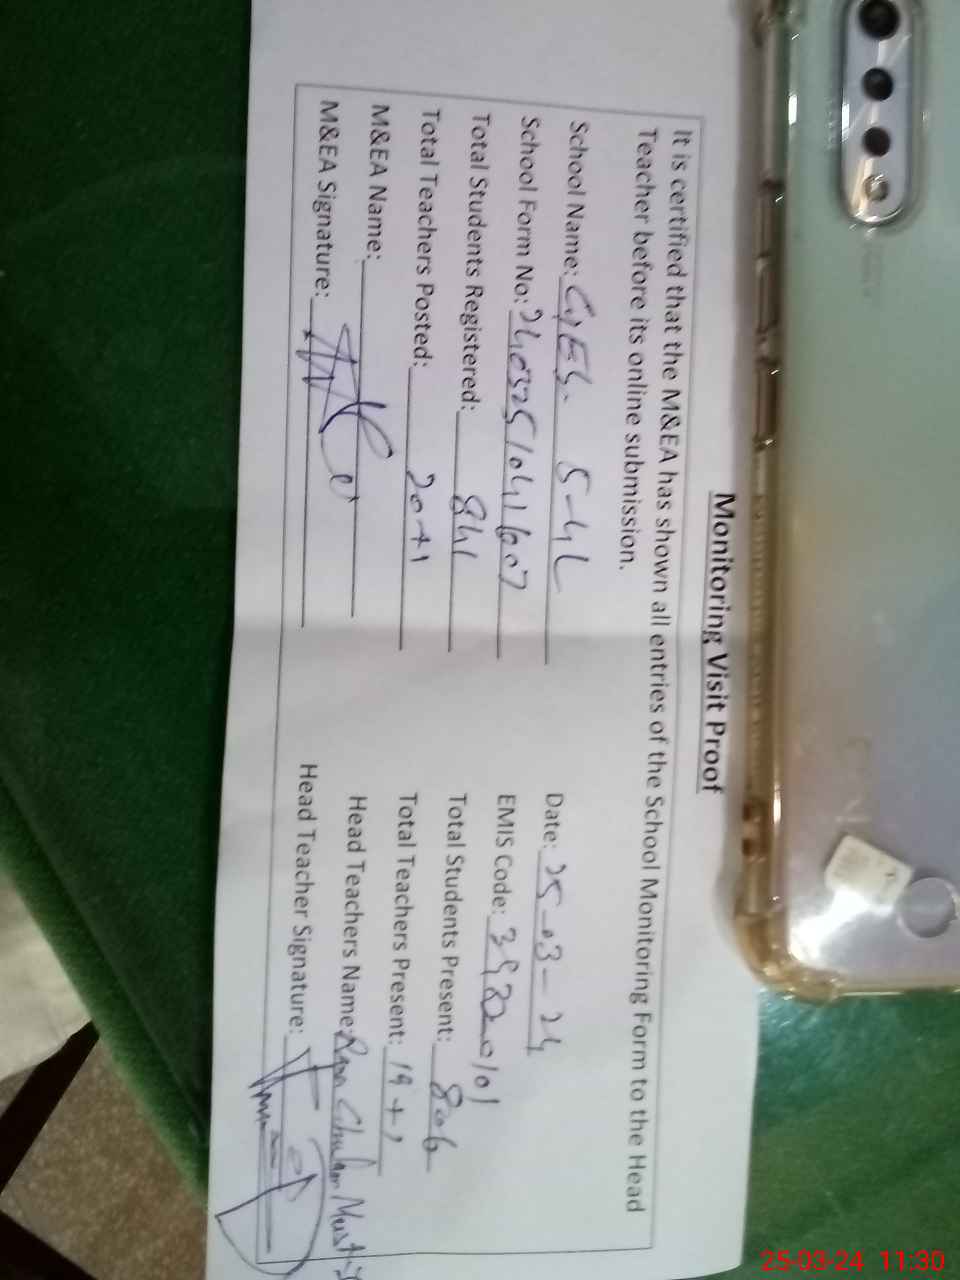 Monitoring Visit Proof
It is certified that the M&EA has shown all entries of the School Monitoring Form to the Head
Teacher before its online submission.
School Name: GES 5-4L Date: 25-03-24
School Form No: EMIS Code:
Total Students Registered: 841 Total Students Present: 806
Total Teachers Posted: 20+1 Total Teachers Present: 19+1
M&EA Name: Head Teachers Name: Rana Ghulam
M&EA Signature: Head Teacher Signature:
25-03-24 11:30